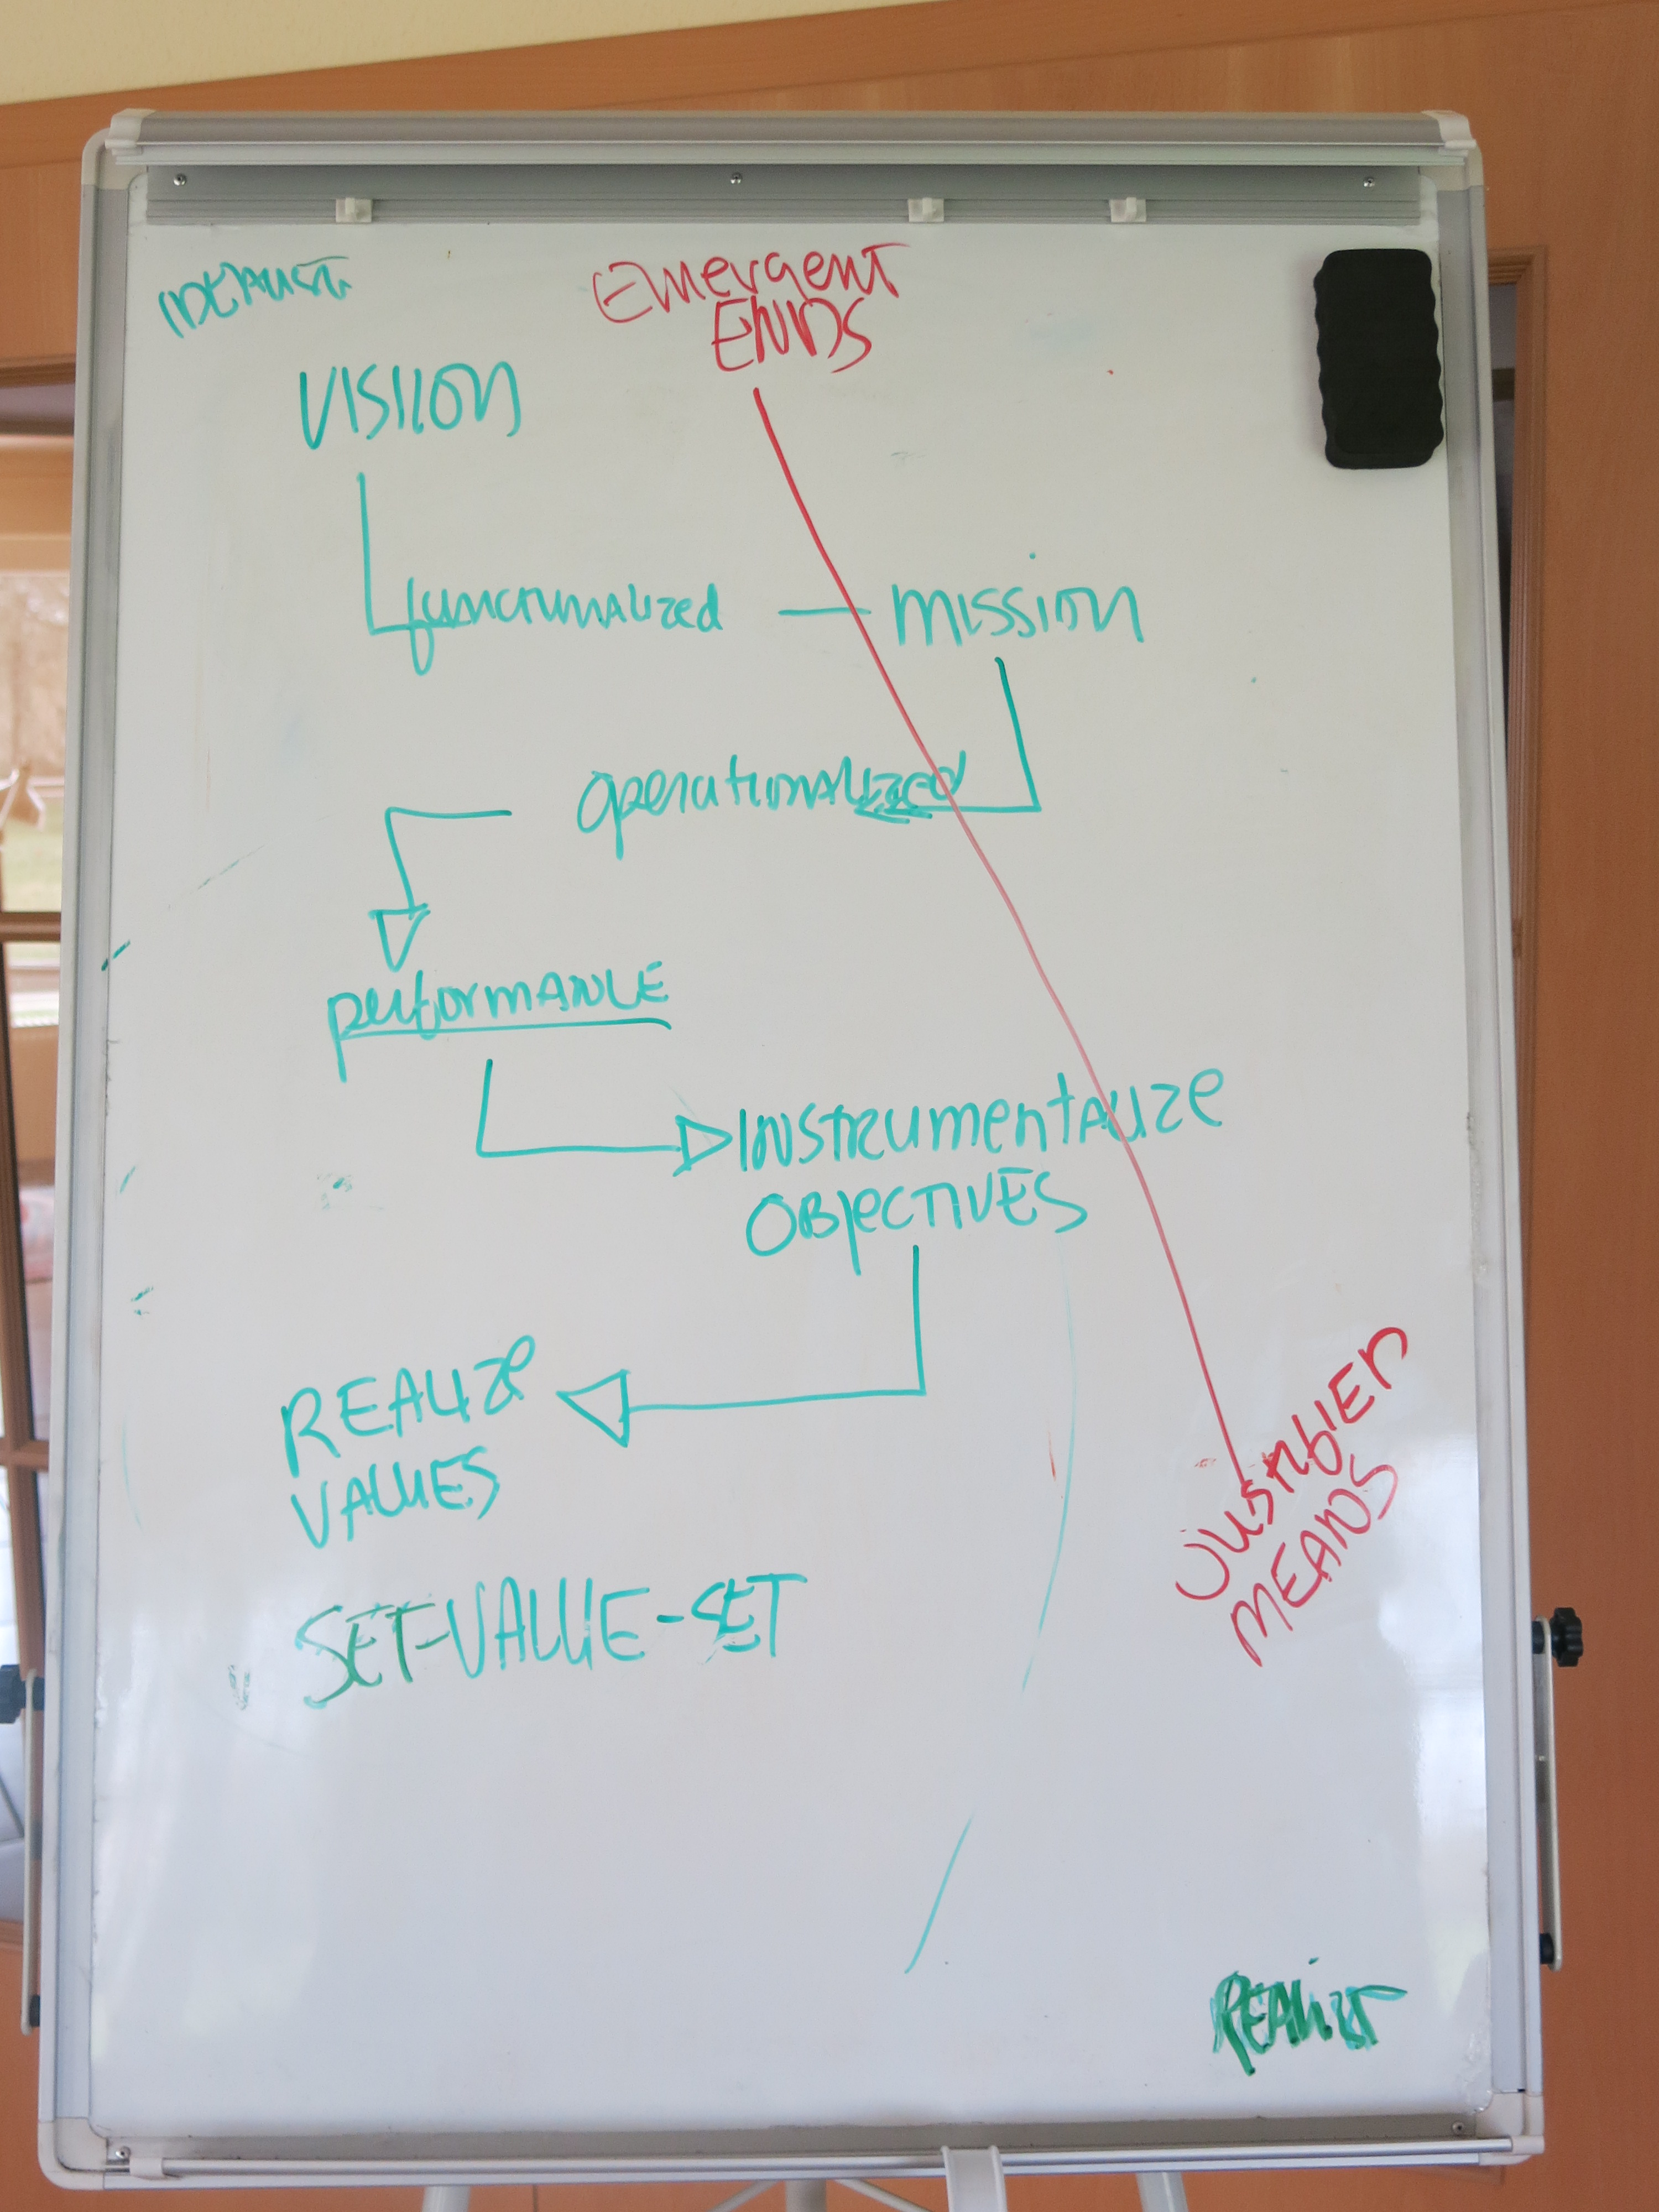 IDEALIST
EMERgENT
ENDS
VISION
functionalized
MISSION
operationalized
performANCE
INSTRumentALIZE
OBJECTIVES
REALIZE
VALUES
SET-VALUE-SET
MEANS
REALIST